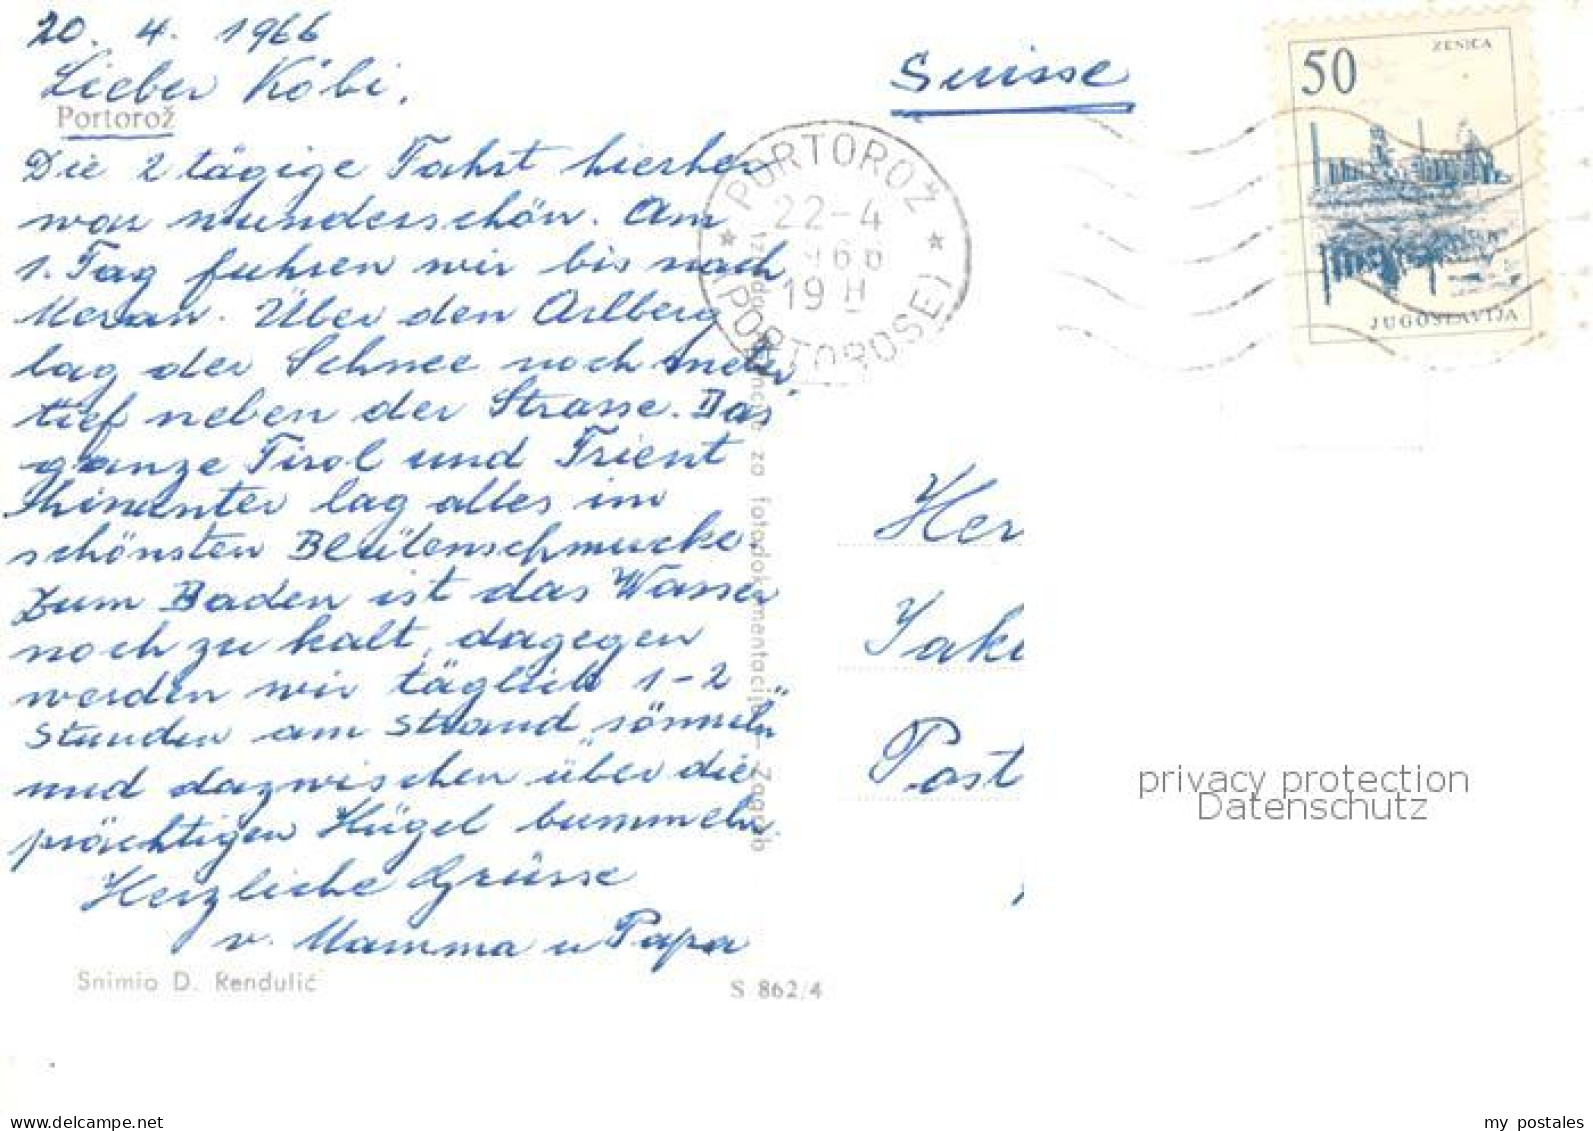 20. 4. 1966
Lieber Köbi,
Portorož
Die 2 tägige Fahrt hierher
war wunderschön. Am
1. Tag fuhren wir bis nach
Meran. Über den Arlberg
lag der Schnee noch meter
tief neben der Strasse. Das
ganze Tirol und Trient
hinunter lag alles im
schönsten Blütenschmucke.
Zum Baden ist das Wasser
noch zu kalt, dagegen
werden wir täglich 1-2
Stunden am Strand "sönneln"
und dazwischen über die
prächtigen Hügel bummeln.
Herzliche Grüsse
v. Mamma u Papa
Snimio D. Rendulić
S 862/4
za fotodokumentaciju - Zagreb
Suisse
PORTOROŽ
22-4
1966
19 H
(PORTOROSE)
50
ZENICA
JUGOSLAVIJA
Her
Jak
Post
privacy protection
Datenschutz
my_postales
www.delcampe.net